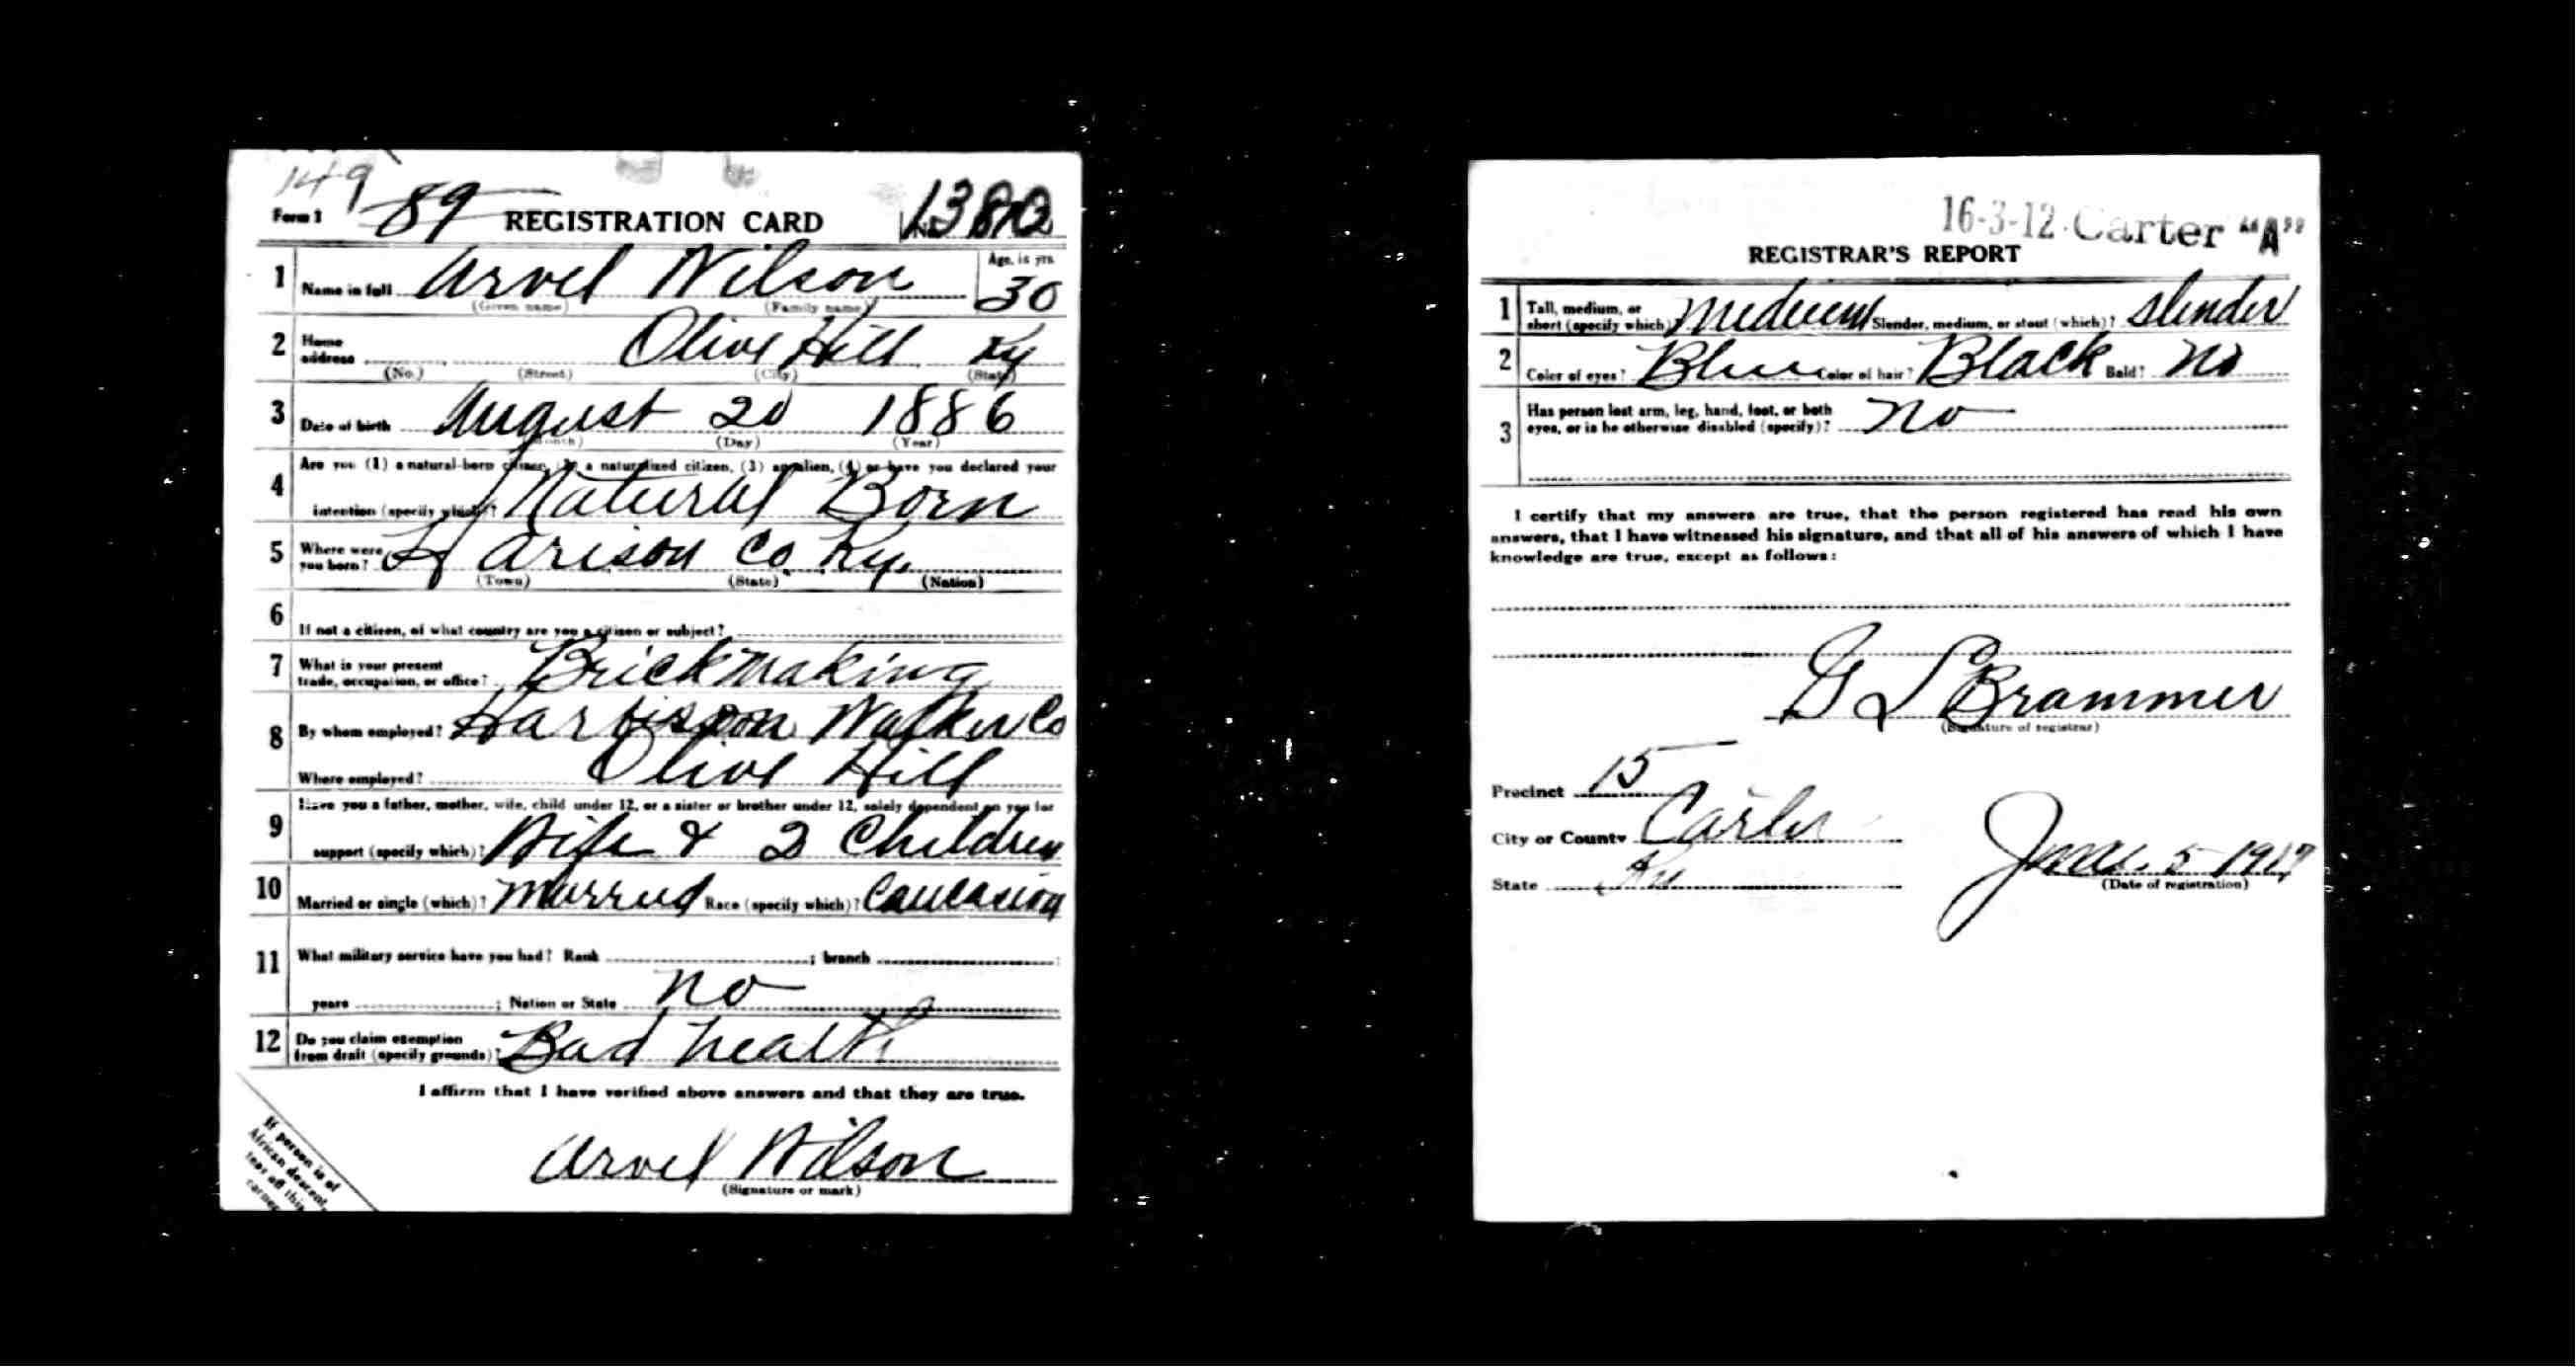 149
Form 1 89 REGISTRATION CARD No.
1 Name in full Arvel Wilson Age, in yrs. 30
(Given name) (Family name)
2 Home address Olive Hill Ky
(No.) (Street) (City) (State)
3 Date of birth August 20 1886
(Month) (Day) (Year)
4 Are you (1) a natural-born citizen, (2) a naturalized citizen, (3) an alien, (4) or have you declared your
intention (specify which)? Natural Born
5 Where were you born? Harison Co Ky.
(Town) (State) (Nation)
6 If not a citizen, of what country are you a citizen or subject?
7 What is your present trade, occupation, or office? Brickmaking
8 By whom employed? Harbison Walker Co
Where employed? Olive Hill
9 Have you a father, mother, wife, child under 12, or a sister or brother under 12, solely dependent on you for
support (specify which)? Wife & 2 Children
10 Married or single (which)? Married Race (specify which)? Caucasion
11 What military service have you had? Rank ; branch ;
years ; Nation or State No
12 Do you claim exemption from draft (specify grounds)? Bad health
I affirm that I have verified above answers and that they are true.
Arvel Wilson
(Signature or mark)
If person is of
African descent,
tear off this
corner
16-3-12. Carter "A"
REGISTRAR'S REPORT
1 Tall, medium, or short (specify which)? Medium Slender, medium, or stout (which)? Slender
2 Color of eyes? Blue Color of hair? Black Bald? No
3 Has person lost arm, leg, hand, foot, or both
eyes, or is he otherwise disabled (specify)? No
I certify that my answers are true, that the person registered has read his own
answers, that I have witnessed his signature, and that all of his answers of which I have
knowledge are true, except as follows:
G L Brammer
(Signature of registrar)
Precinct 15
City or County Carter
State Ky
June 5 1917
(Date of registration)